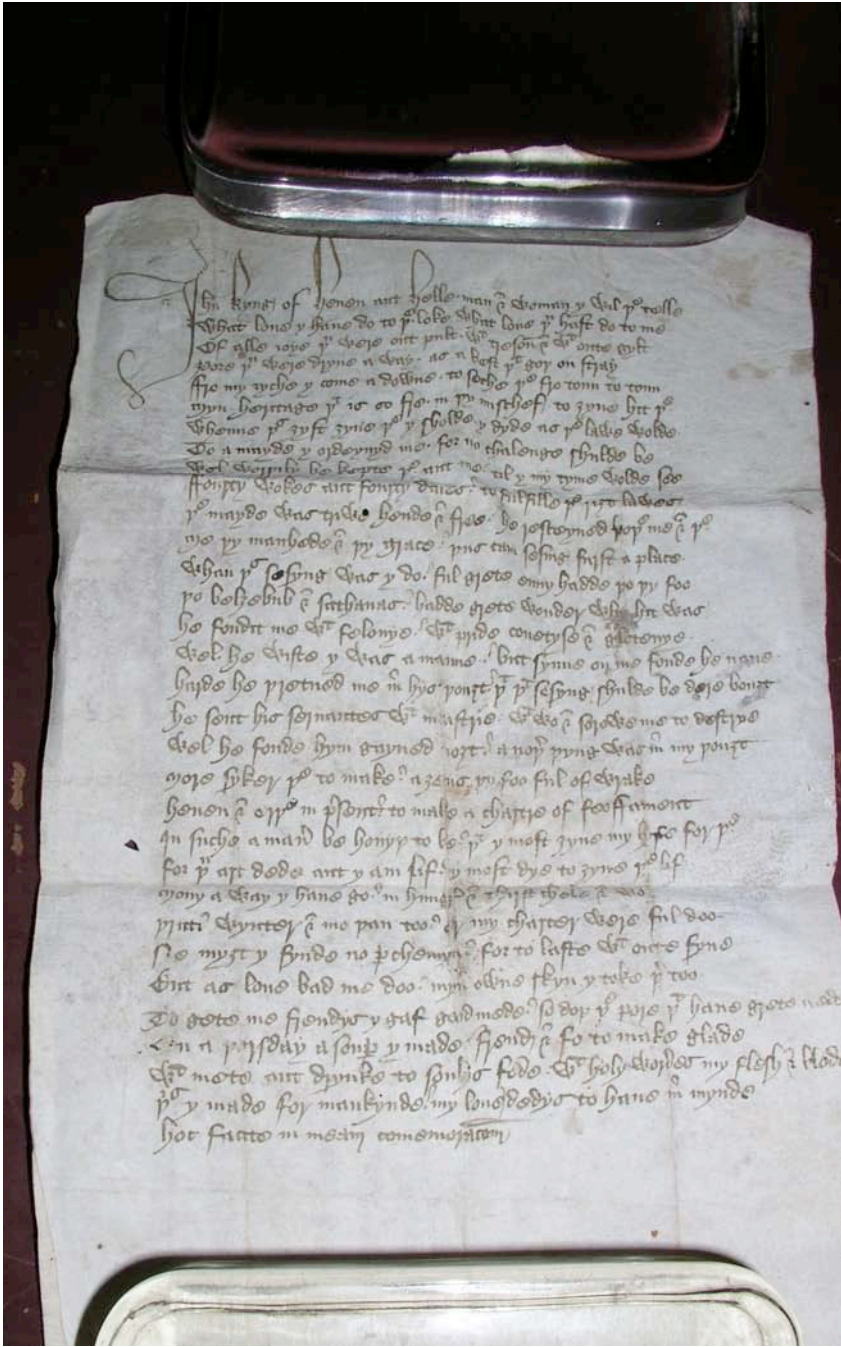 Ihu kyng of heuen ant helle man & woman y wil þe telle
What loue y haue do to þe loke what loue þu hast do to me
Of alle ioye þu were out put wt resoun & wt oute gylt
pore þu were dryue a way as a best þt goþ on stray
ffro my ryche y come a downe to seche þe fro toun to toun
myn heritage þt is so fre in þy mischef to ȝyue hit þe
Whenne þe ȝyft ȝyue þe y sholde y dyde as þe lawe wolde
To a mayde y ordeynyd me for no chalenge shulde be
Wel worþily he kepte þe ant me til y my tyme wolde see
ffourty wokes ant fourty dawes to fulfille þe riȝt lawes
þe mayde was triwe hende & free he resceyued boþe me & þe
me þy manhede & þy grace þus cam sesing furst a place
Whan þis sesyng was y do ful grete enuy hadde þo þy foo
þo belzebub & sathanas hadde grete wonder why hit was
he fondit me wt felonye wt pride couetyse & glotenye
Wel he wiste y was a manne but synne on me fonde he nane
harde he þretned me in hys þouȝt þt þt sesyng shulde be dere bouȝt
he sent his seruantes wt maistrie wt wo & sorewe me to destrye
Wel he fonde hym gayned noȝt anoþer þyng was in my þouȝt
more syker þe to make aȝens þy foo ful of wrake
heuen & erþe in present to make a chartre of feoffament
In suche a maner be houyþ to be þt y most ȝyue my lyfe for þe
for þu art deder ant y am lif y most dye to ȝyue þe lif
mony a way y haue go in hunger & thirst chele & wo
þritti wynter & mo þan too er my charter were ful doo
Ne myȝt y fynde no perchemyn for to laste wt oute fyne
But as loue bad me doo myn owne skyn y toke þer too
To gete me frendys y gaf god mede so doþ þe pore þt haue grete nede
On a þorsday a souper y made frendis & fo to make glade
Wt mete ant drynke to soulys fede Wt holy wordes my flesh & blode
þis y made for mankynde my loue dedys to haue in mynde
hoc facite in meam comemoracoem